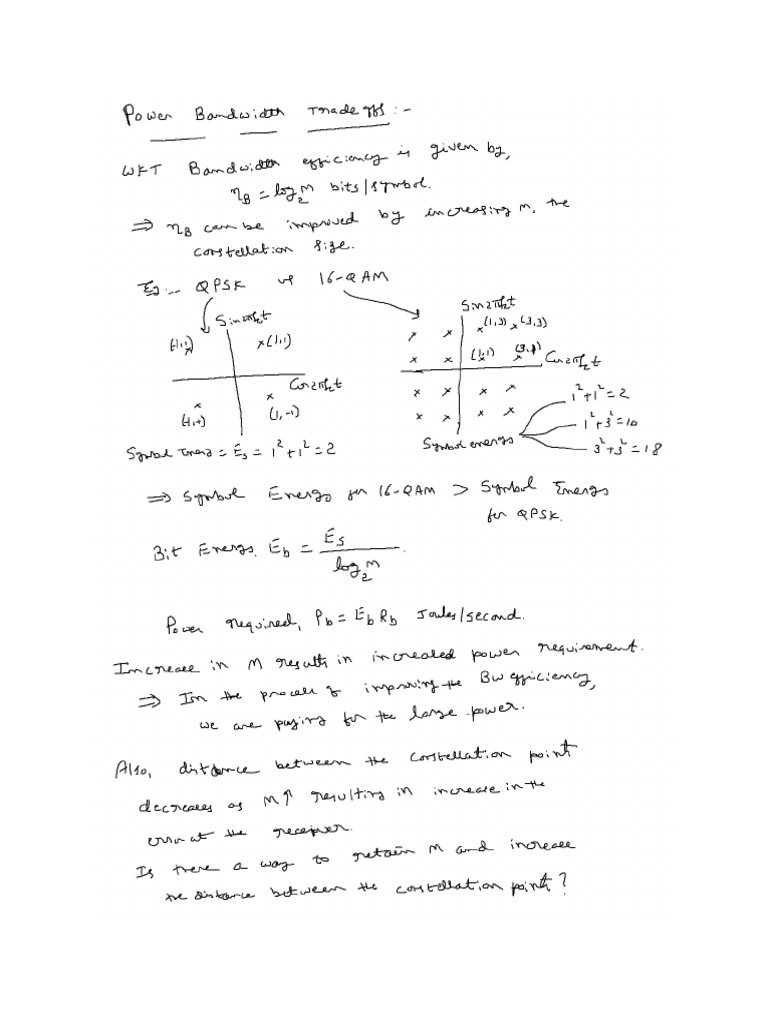 Power Bandwidth Tradeoffs :-
WKT Bandwidth efficiency is given by,
η_B = log_2 M bits/symbol.
⇒ η_B can be improved by increasing M, the
constellation size.
Eg:- QPSK vs 16-QAM
Sin2πf_ct
(-1,1) x x(1,1)
Cos2πf_ct
x x
(-1,-1) (1,-1)
Symbol Energy = E_s = 1^2+1^2 = 2
Sin2πf_ct
x x x(1,3) x(3,3)
x x (1,1) x (3,1) x
Cos2πf_ct
x x x x
x x x x
Symbol energy
1^2+1^2 = 2
1^2+3^2 = 10
3^2+3^2 = 18
⇒ Symbol Energy for 16-QAM > Symbol Energy
for QPSK.
Bit Energy, E_b = E_s / log_2 M .
Power required, P_b = E_b R_b Joules/second.
Increase in M results in increased power requirement.
⇒ In the process of improving the BW efficiency,
we are paying for the large power.
Also, distance between the constellation point
decreases as M↑ resulting in increase in the
error at the receiver.
Is there a way to retain M and increase
the distance between the constellation point?